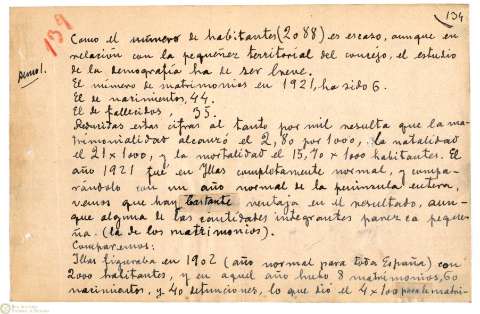 134
139
Como el número de habitantes (2088) es escaso, aunque en
relación con la pequeñez territorial del concejo, el estudio
de la demografía ha de ser breve.
El número de matrimonios en 1921, ha sido 6.
El de nacimientos, 44.
El de fallecidos, 35.
Reducidas estas cifras al tanto por mil resulta que la ma-
trimonialidad alcanzó el 2,80 por 1000, la natalidad
el 21 x 1000, y la mortalidad el 15,70 x 1000 habitantes. El
año 1921 fue en Illas completamente normal, y compa-
rándolo con un año normal de la península entera,
vemos que hay bastante ventaja en el resultado, aun-
que alguna de las cantidades integrantes parezca peque-
ña. (la de los matrimonios).
Comparemos:
Illas figuraba en 1902 (año normal para toda España) con
2000 habitantes, y en aquel año hubo 8 matrimonios, 60
nacimientos, y 40 defunciones, lo que dió el 4 x 100 para la matri-